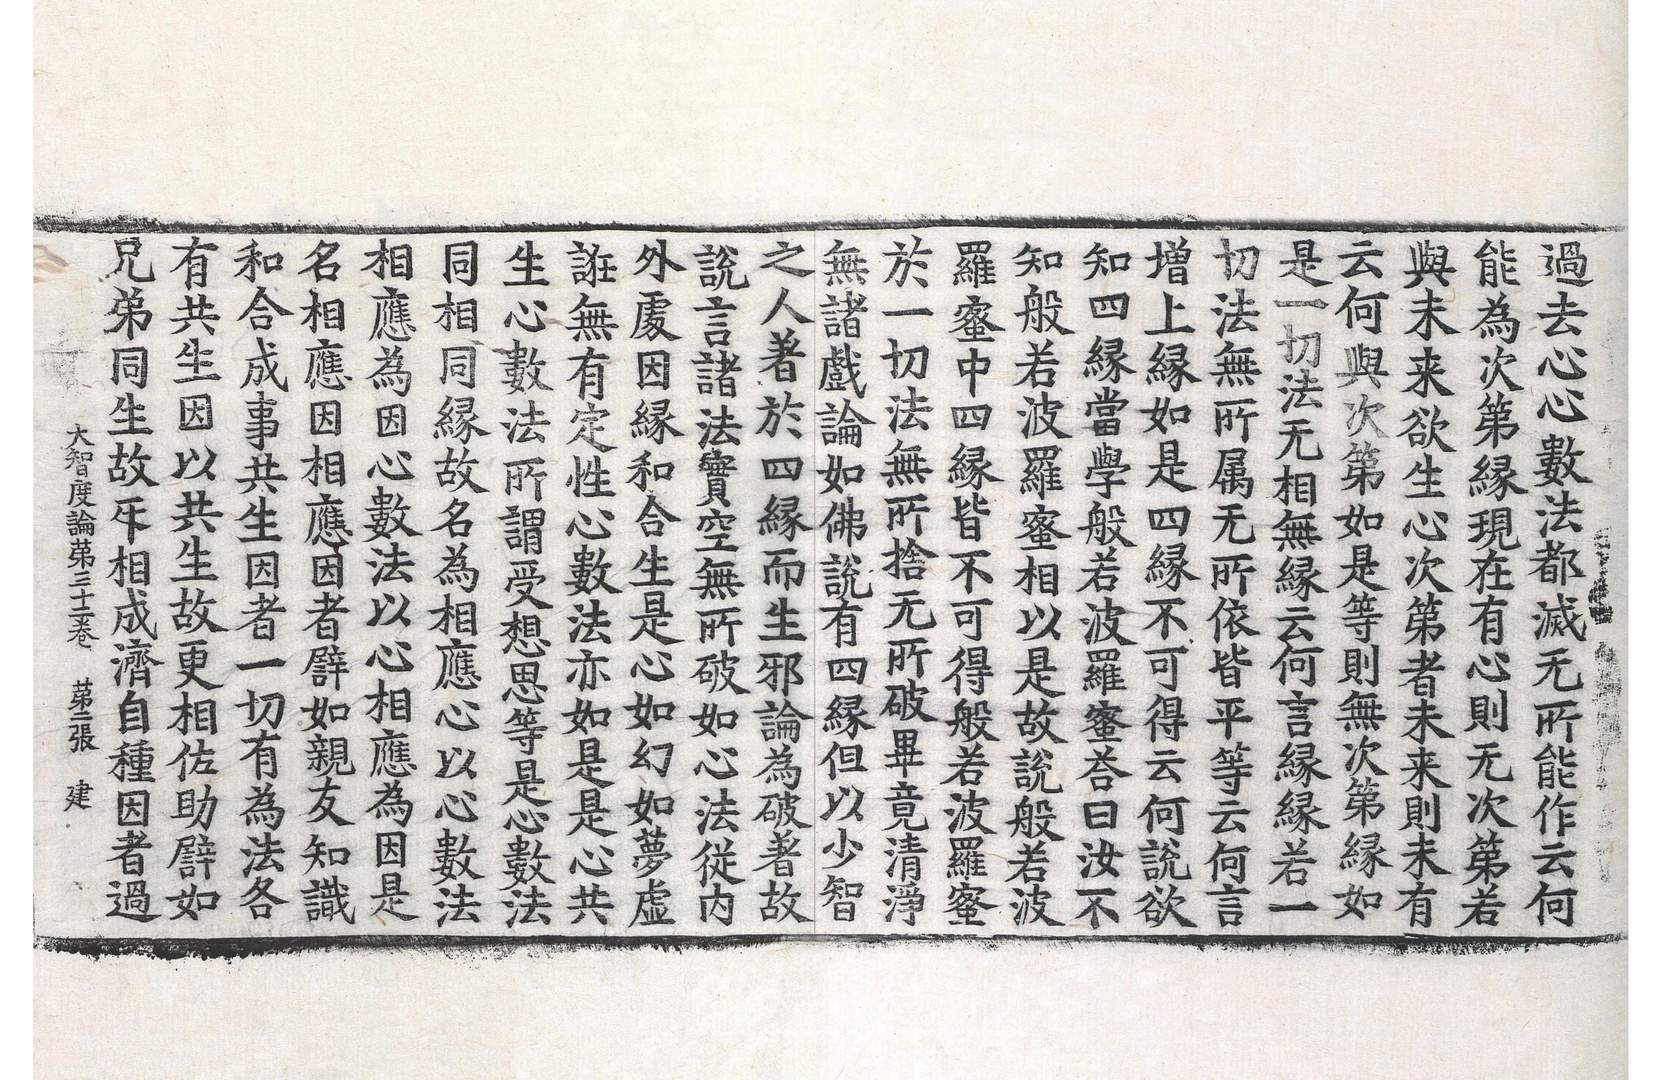 過去心心數法都滅无所能作云何
能為次第縁現在有心則无次第若
與未来欲生心次第者未来則未有
云何與次第如是等則無次第縁如
是一切法无相無縁云何言縁縁若一
切法無所属无所依皆平等云何言
增上縁如是四縁不可得云何說欲
知四縁當學般若波羅蜜荅曰汝不
知般若波羅蜜相以是故說般若波
羅蜜中四縁皆不可得般若波羅蜜
於一切法無所捨无所破畢竟清淨
無諸戲論如佛說有四縁但以少智
之人著於四縁而生邪論為破著故
說言諸法實空無所破如心法從内
外處因縁和合生是心如幻如夢虛
誑無有定性心數法亦如是是心共
生心數法所謂受想思等是心數法
同相同縁故名為相應心以心數法
相應為因心數法以心相應為因是
名相應因相應因者譬如親友知識
和合成事共生因者一切有為法各
有共生因以共生故更相佐助譬如
兄弟同生故㸦相成濟自種因者過
大智度論第三十二卷　第二張　建